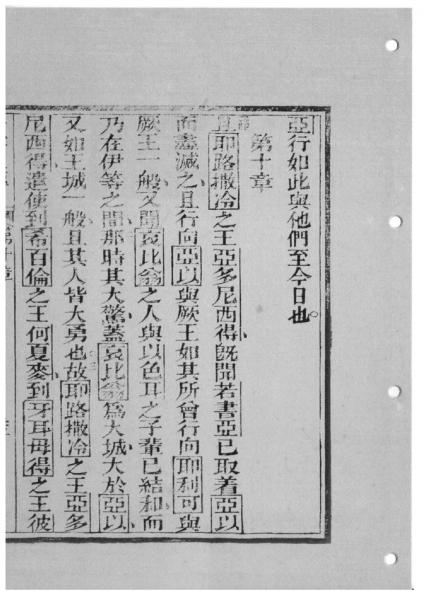 亞行如此與他們至今日也。
第十章
且耶路撒冷之王亞多尼西得、旣聞若書亞已取着亞以
而盡滅之、且行向亞以與厥王如其所曾行向耶利可與
厥王一般、又聞哀比翁之人與以色耳之子輩已結和、而
乃在伊等之間、那時其大驚、蓋哀比翁爲大城、大於亞以、
又如王城一般、且其人皆大勇也、故耶路撒冷之王亞多
尼西得、遣使到希百倫之王何夏麥、到牙耳毋得之王彼